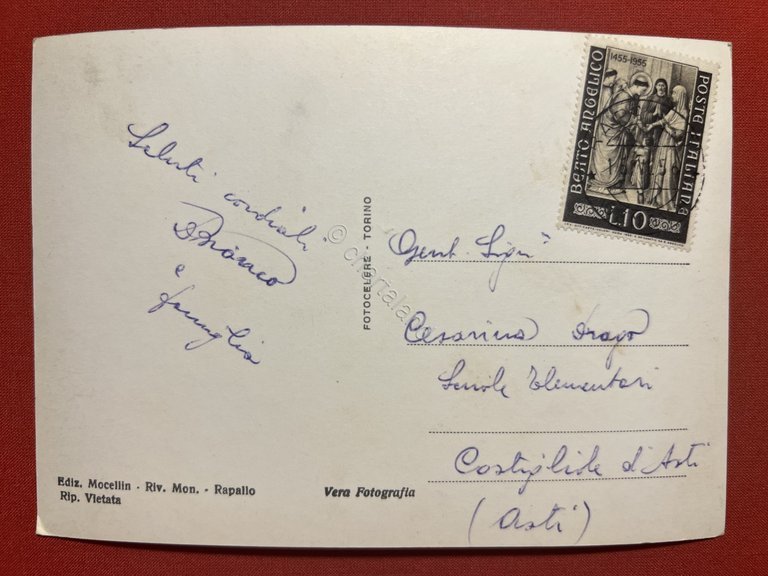 1455-1955
BEATO ANGELICO
POSTE ITALIANE
L.10
Saluti cordiali
e
famiglia
FOTOCELERE - TORINO
© cartala
Gent. Sigra
Cesarina Drago
Scuole Elementari
Costigliole d'Asti
(Asti)
Ediz. Mocellin - Riv. Mon. - Rapallo
Rip. Vietata
Vera Fotografia